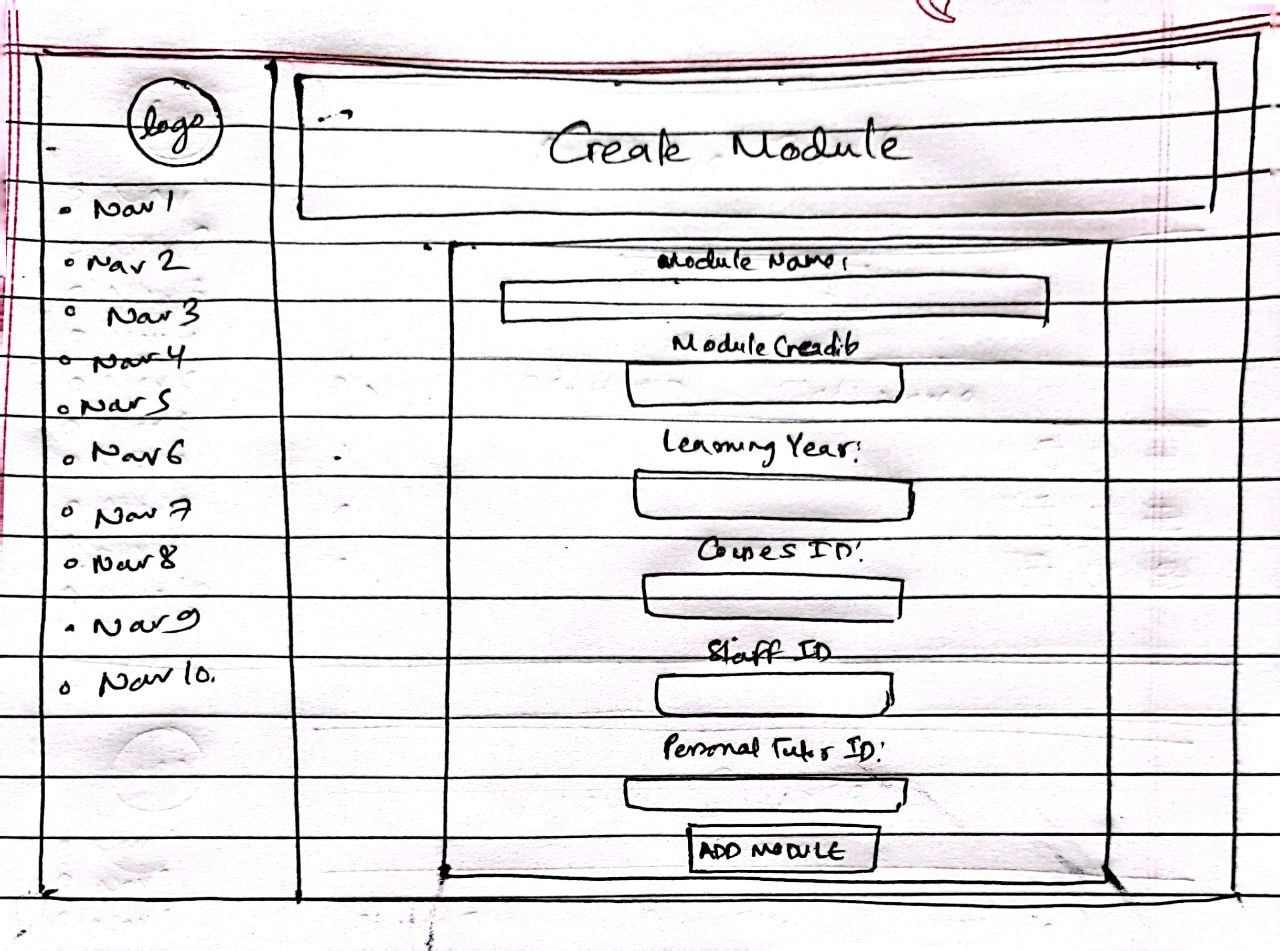 logo
Nav 1
Nav 2
Nav 3
Nav 4
Nav 5
Nav 6
Nav 7
Nav 8
Nav 9
Nav 10.
Create Module
Module Name:
Module Creadit
Learning Year:
Courses ID:
Staff ID
Personal Tutor ID:
ADD MODULE